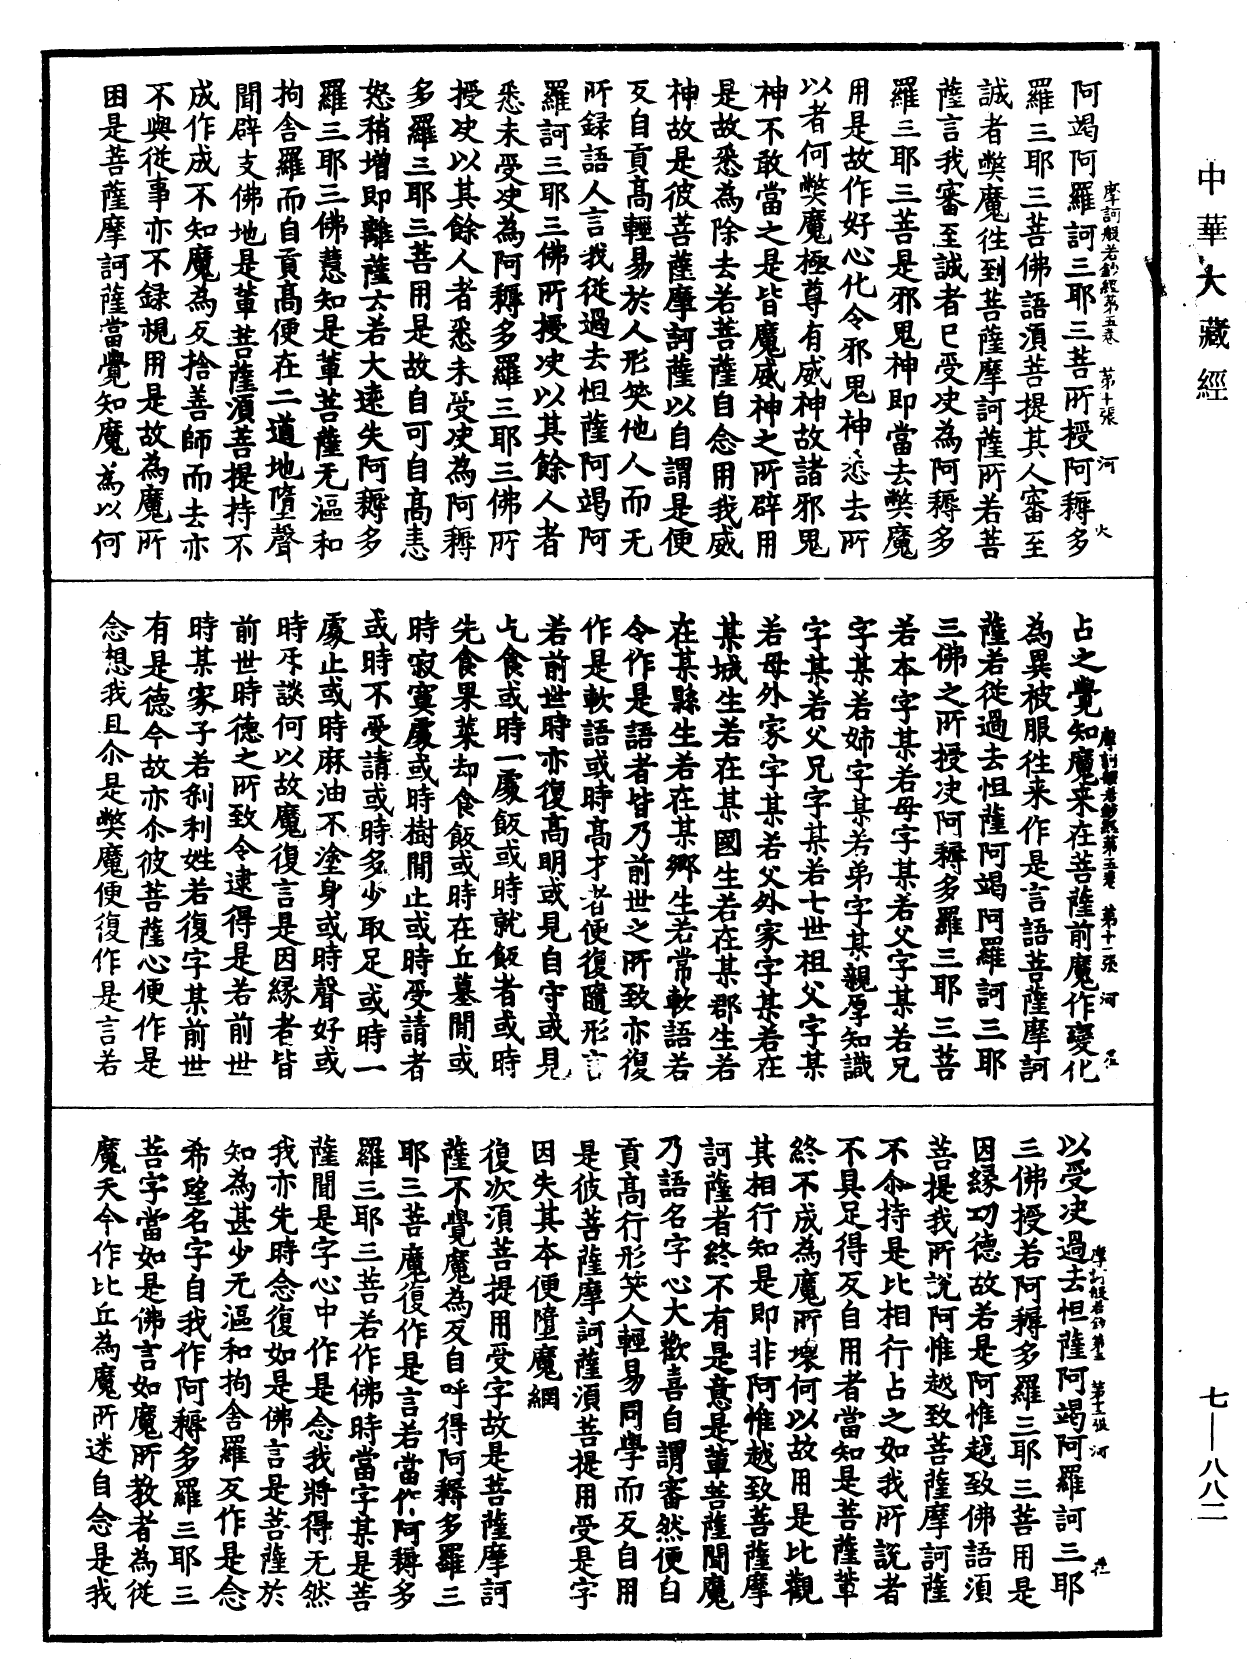 中華大藏經
摩訶般若鈔經第五卷 第十張 河
阿竭阿羅訶三耶三菩所授阿耨多
羅三耶三菩佛語須菩提其人審至
誠者弊魔往到菩薩摩訶薩所若菩
薩言我審至誠者已受决為阿耨多
羅三耶三菩是邪鬼神即當去弊魔
用是故作好心化令邪鬼神悉去所
以者何弊魔極尊有威神故諸邪鬼
神不敢當之是皆魔威神之所辟用
是故悉為除去若菩薩自念用我威
神故是彼菩薩摩訶薩以自謂是便
反自貢高輕易於人形笑他人而无
所録語人言我從過去怛薩阿竭阿
羅訶三耶三佛所授决以其餘人者
悉未受决為阿耨多羅三耶三佛所
授决以其餘人者悉未受决為阿耨
多羅三耶三菩用是故自可自高恚
怒稍増即離薩云若大速失阿耨多
羅三耶三佛慧知是輩菩薩无漚和
拘舍羅而自貢高便在二道地墮聲
聞辟支佛地是輩菩薩須菩提持不
成作成不知魔為反捨善師而去亦
不與從事亦不録視用是故為魔所
困是菩薩摩訶薩當覺知魔為以何
摩訶般若鈔經第五卷 第十一張 河
占之覺知魔来在菩薩前魔作變化
為異被服往来作是言語菩薩摩訶
薩若從過去怛薩阿竭阿羅訶三耶
三佛之所授决阿耨多羅三耶三菩
若本字某若母字某若父字某若兄
字某若姉字某若弟字某親厚知識
字某若父兄字某若七世祖父字某
若母外家字某若父外家字某若在
某城生若在某國生若在某郡生若
在某縣生若在某鄉生若常軟語若
令作是語者皆乃前世之所致亦復
作是軟語或時高才者便復隨形言
若前世時亦復高明或見自守或見
乞食或時一處飯或時就飯者或時
先食果菜却食飯或時在丘墓閒或
時寂寞處或時樹閒止或時受請者
或時不受請或時多少取足或時一
處止或時麻油不塗身或時聲好或
時不談何以故魔復言是因縁者皆
前世時德之所致令逮得是若前世
時某家子若刹利姓若復字某前世
有是德今故亦尒彼菩薩心便作是
念想我且尒是弊魔便復作是言若
摩訶般若鈔第五 第十二張 河
以受决過去怛薩阿竭阿羅訶三耶
三佛授若阿耨多羅三耶三菩用是
因縁功德故若是阿惟越致佛語須
菩提我所說阿惟越致菩薩摩訶薩
不尒持是比相行占之如我所説者
不具足得反自用者當知是菩薩輩
終不成為魔所壞何以故用是比觀
其相行知是即非阿惟越致菩薩摩
訶薩者終不有是意是輩菩薩聞魔
乃語名字心大歡喜自謂審然便自
貢高行形笑人輕易同學而反自用
是彼菩薩摩訶薩須菩提用受是字
因失其本便墮魔網
復次須菩提用受字故是菩薩摩訶
薩不覺魔為反自呼得阿耨多羅三
耶三菩魔復作是言若當作阿耨多
羅三耶三菩若作佛時當字某是菩
薩聞是字心中作是念我將得无然
我亦先時念復如是佛言是菩薩於
知為甚少无漚和拘舍羅反作是念
希望名字自我作阿耨多羅三耶三
菩字當如是佛言如魔所教者為從
魔天今作比丘為魔所迷自念是我
七—八八二